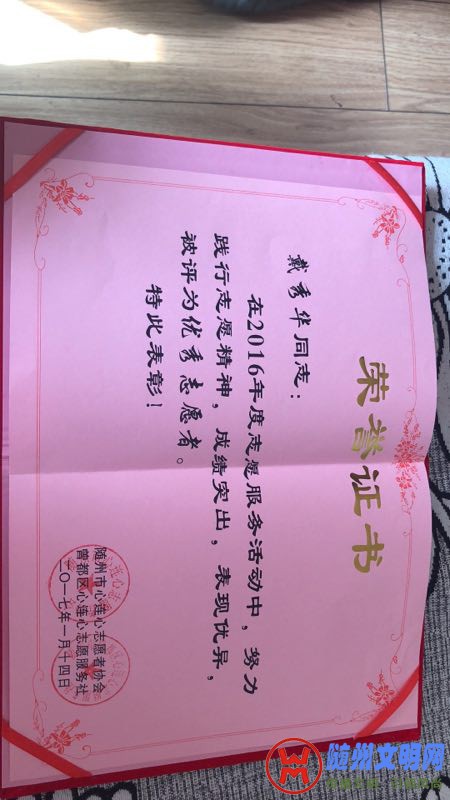 荣誉证书
戴秀华同志：
在2016年度志愿服务活动中，努力
践行志愿精神，成绩突出，表现优异，
被评为优秀志愿者。
特此表彰！
随州市心连心志愿者协会
曾都区心连心志愿服务社
二〇一七年一月十四日
随州文明网